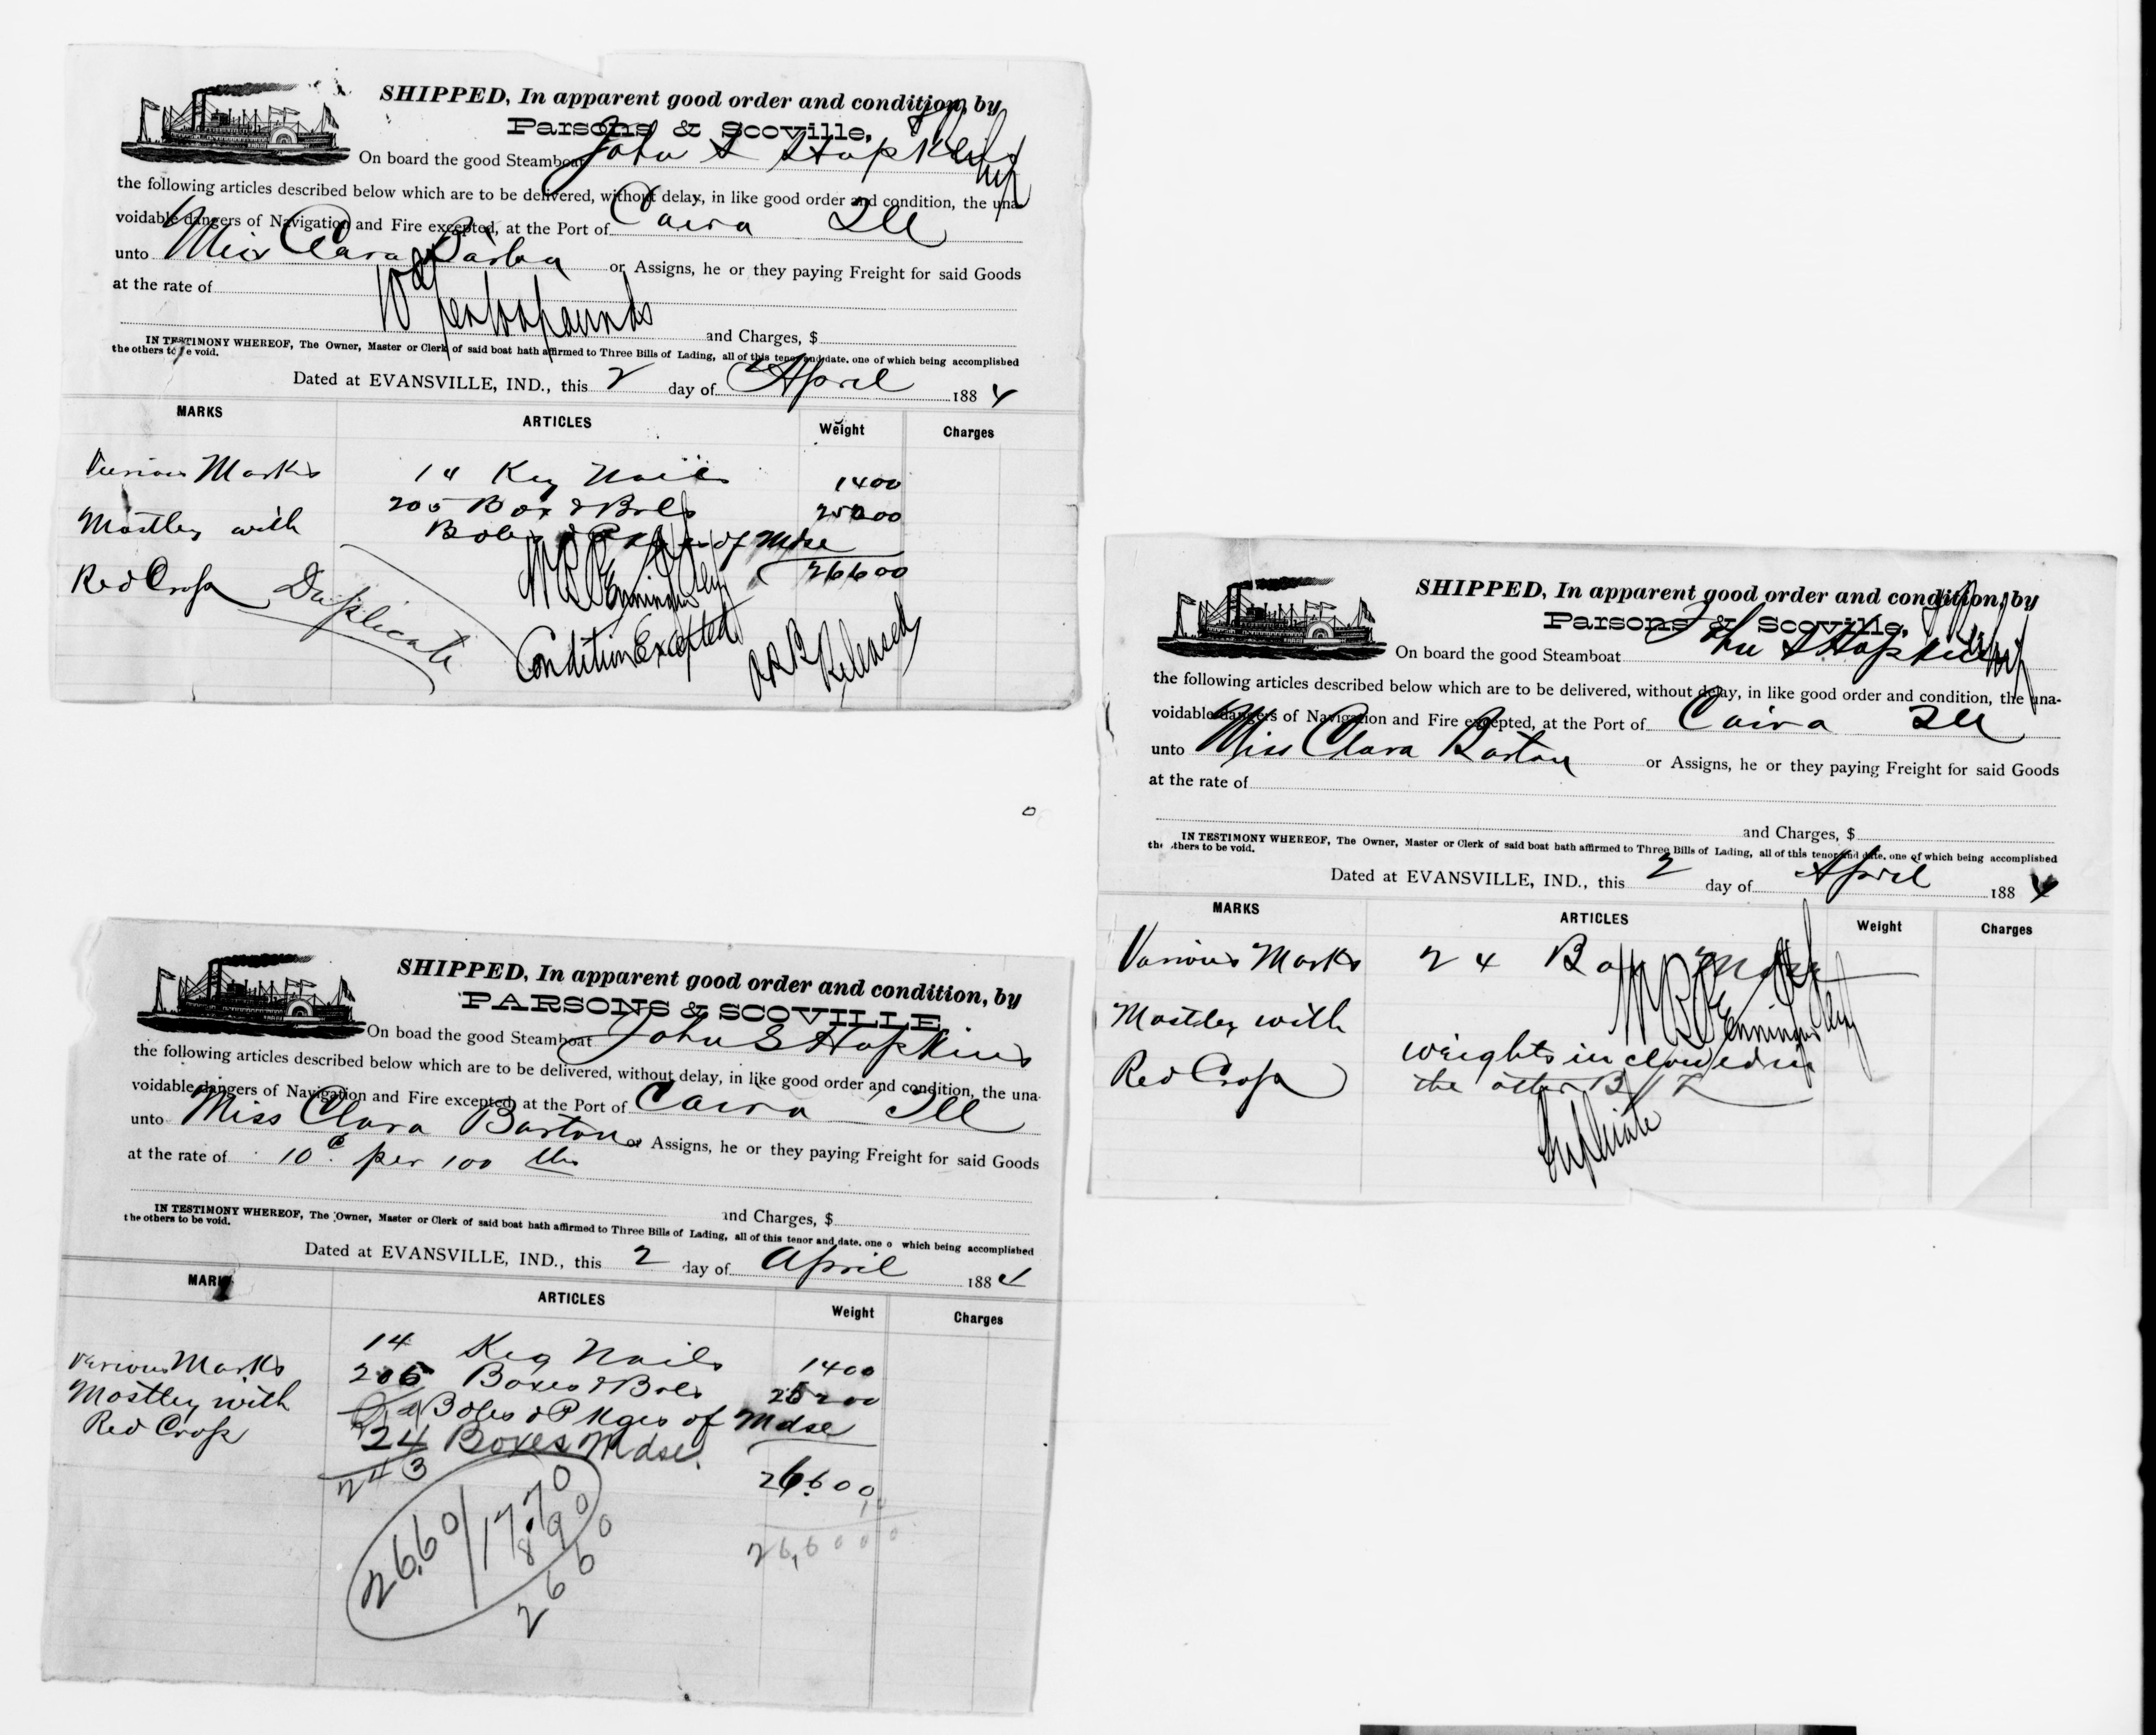 SHIPPED, In apparent good order and condition, by
Parsons & Scoville,
On board the good Steamboat John S Hopkins
the following articles described below which are to be delivered, without delay, in like good order and condition, the una-
voidable dangers of Navigation and Fire excepted, at the Port of Cairo Ill
unto Miss Clara Barton or Assigns, he or they paying Freight for said Goods
at the rate of 10¢ per 100 pounds
and Charges, $
IN TESTIMONY WHEREOF, The Owner, Master or Clerk of said boat hath affirmed to Three Bills of Lading, all of this tenor and date, one of which being accomplished
the others to be void.
Dated at EVANSVILLE, IND., this 2 day of April 1884
MARKS ARTICLES Weight Charges
Various Marks 14 Keg Nails 1400
Mostley with 205 Box & Bbls 25200
Boles & Pkges of Mdse
Red Cross Duplicate 26600
Condition Excepted
O.R.B Released
SHIPPED, In apparent good order and condition, by
Parsons & Scoville,
On board the good Steamboat John S Hopkins
the following articles described below which are to be delivered, without delay, in like good order and condition, the una-
voidable dangers of Navigation and Fire excepted, at the Port of Cairo Ill
unto Miss Clara Barton or Assigns, he or they paying Freight for said Goods
at the rate of
and Charges, $
IN TESTIMONY WHEREOF, The Owner, Master or Clerk of said boat hath affirmed to Three Bills of Lading, all of this tenor and date, one of which being accomplished
the others to be void.
Dated at EVANSVILLE, IND., this 2 day of April 1884
MARKS ARTICLES Weight Charges
Various Marks 24 Box Mdse
Mostley with
weights in clowed in
Red Cross the other B/L
Duplicate
SHIPPED, In apparent good order and condition, by
PARSONS & SCOVILLE
On boad the good Steamboat John S Hopkins
the following articles described below which are to be delivered, without delay, in like good order and condition, the una-
voidable dangers of Navigation and Fire excepted, at the Port of Cairo Ill
unto Miss Clara Barton or Assigns, he or they paying Freight for said Goods
at the rate of 10¢ per 100 lbs
and Charges, $
IN TESTIMONY WHEREOF, The Owner, Master or Clerk of said boat hath affirmed to Three Bills of Lading, all of this tenor and date, one o which being accomplished
the others to be void.
Dated at EVANSVILLE, IND., this 2 day of April 1884
MARKS ARTICLES Weight Charges
14 Keg Nails 1400
Various Marks 205 Boxes & Bbls 25200
Mostley with Boles & Pkges of Mdse
Red Cross 24 Boxes Mdse.
243 26600
26,60 / 17.70
8.90
26 60
26,600 0